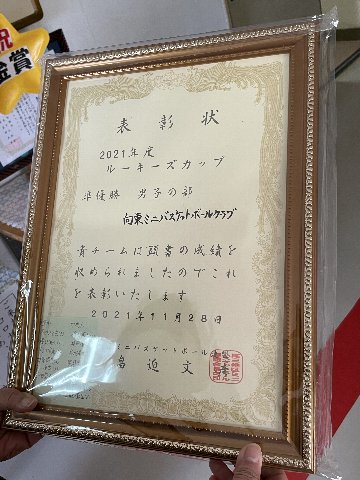 祝
金賞
表彰状
2021年度
ルーキーズカップ
準優勝 男子の部
向東ミニバスケットボールクラブ
貴チームは頭書の成績を
収められましたのでこれ
を表彰いたします
2021年11月28日
ミニバスケットボール